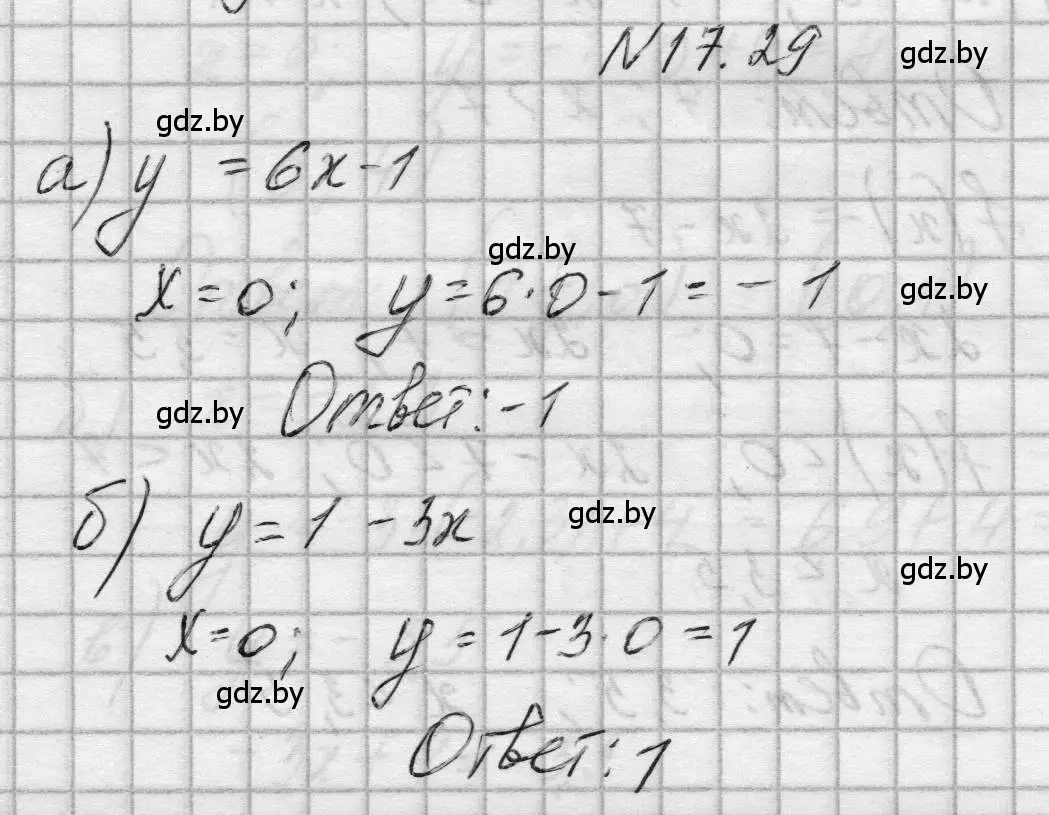 N17.29 gdz.by
gdz.by
а) y = 6x-1
gdz.by
x=0; y=6·0-1=-1 gdz.by
gdz.by Ответ: -1
б) y=1-3x gdz.by
gdz.by
x=0; y=1-3·0=1
gdz.by
Ответ: 1